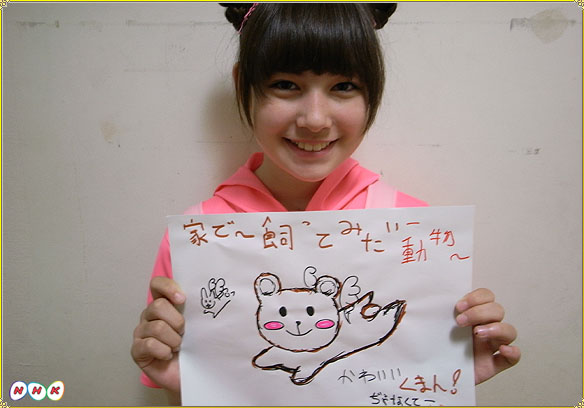 家で〜飼ってみたいー
動物〜
かわいい
くまん!
ぢゃなくてー
NHK